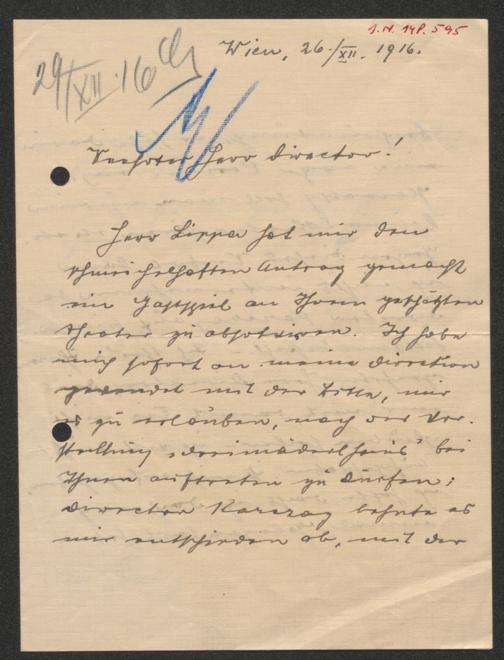 I.N. 148.595
29/XII.16
Wien, 26./XII. 1916.
Verehrter Herr Director!
Herr Lippa hat mir den
schmeichelhaften Antrag gemacht
ein Gastspiel an Ihrem geschätzten
Theater zu absolviren. Ich habe
mich sofort an meine Direction
gewendet mit der Bitte, mir
es zu erlauben, nach der Vor-
stellung „Dreimäderlhaus" bei
Ihnen auftreten zu dürfen;
Director Karczag lehnte es
mir entschieden ab, mit der